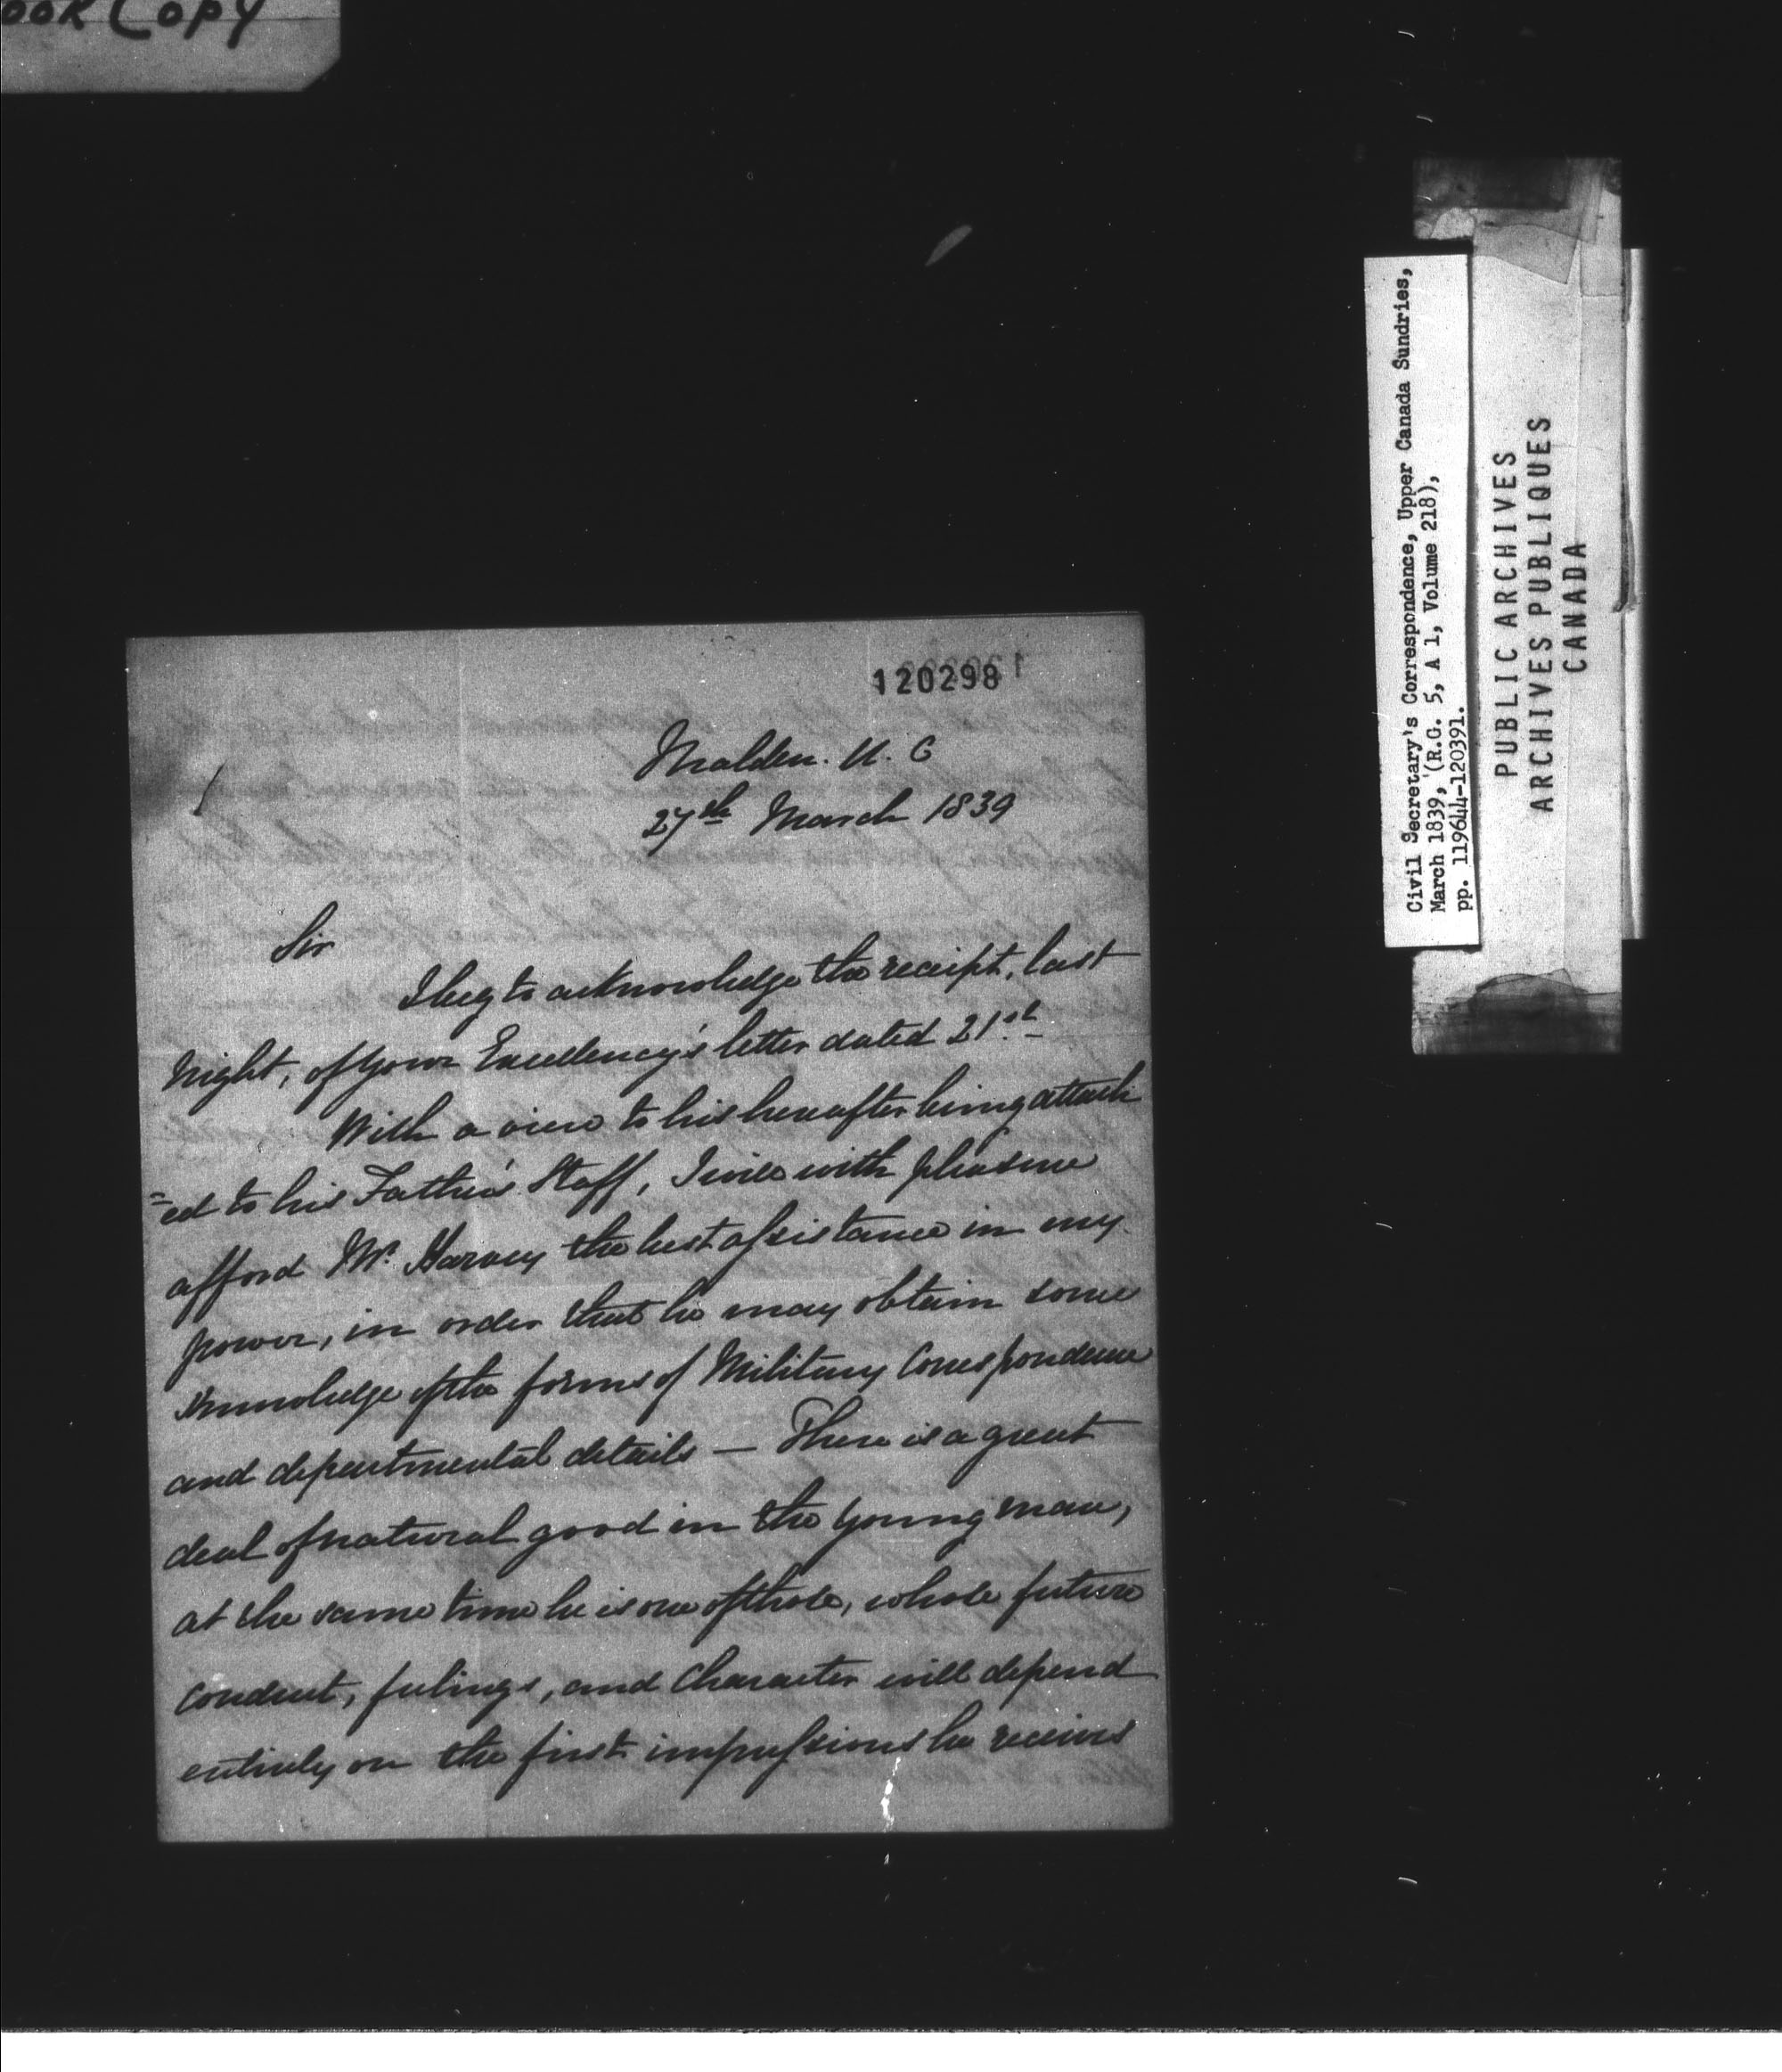 ook Copy
120298
Malden. U. C
27th March 1839
Sir
I beg to acknowledge the receipt, last
Night, of Your Excellency's letter dated 21st
With a view to his hereafter being attach
=ed to his Father's Staff, I will with pleasure
afford Mr. Harvey the best assistance in my
power, in order that he may obtain some
knowledge of the forms of Military Correspondence
and departmental details — There is a great
deal of natural good in the young man,
at the same time he is one of those, whose future
conduct, feelings, and Character will depend
entirely on the first impressions he receives
Civil Secretary's Correspondence, Upper Canada Sundries,
March 1839, (R.G. 5, A 1, Volume 218),
pp. 119644-120391.
PUBLIC ARCHIVES
ARCHIVES PUBLIQUES
CANADA